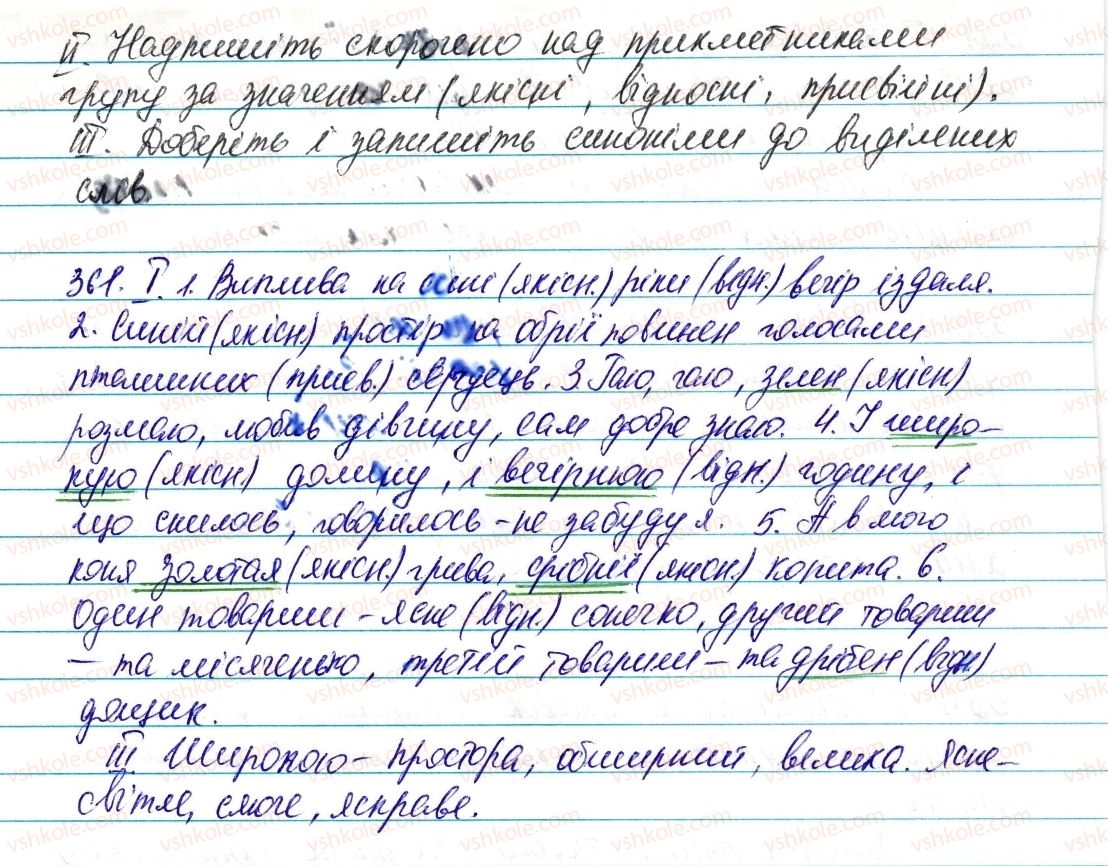 II. Надпишіть скорочено над прикметниками
групу за значенням (якісні, відносні, присвійні).
III. Доберіть і запишіть синоніми до виділених
слів.
361. I. 1. Виплива на сині (якісн.) ріки (відн.) вечір іздаля.
2. Синій (якісн) простір на обрії повинен голосами
пташиних (присв.) сердець. 3 Гаю, гаю, зелен (якісн)
розмаю, любив дівчину, сам добре знаю. 4. І широ-
кую (якісн) долину, і вечірнюю (відн.) годину, і
що снилось, говорилось - не забуду я. 5. А в мого
коня золотая (якісн.) грива, срібнії (якісн.) копита. 6.
Один товариш - ясне (відн.) сонечко, другий товариш
- та місяченько, третій товариш - та дрібен (відн)
дощик.
III Широкого - простора, обширний, велика. Ясне-
світле, сяюче, яскраве.